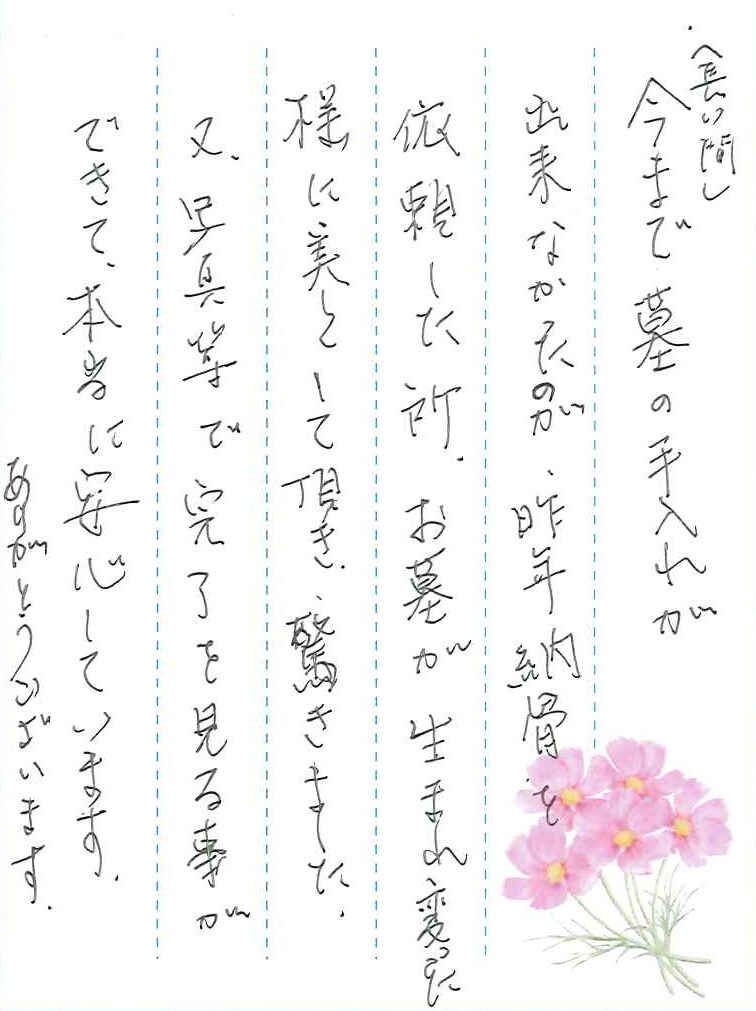 (長い間し
今まで、墓の手入れが
出来なかたのが、昨年納骨を
依頼した所、お墓が生まれ変った
様に美しくして頂き、驚きました。
又、写真等で完了を見る事が
できて、本当に安心しています。
ありがとうございます。